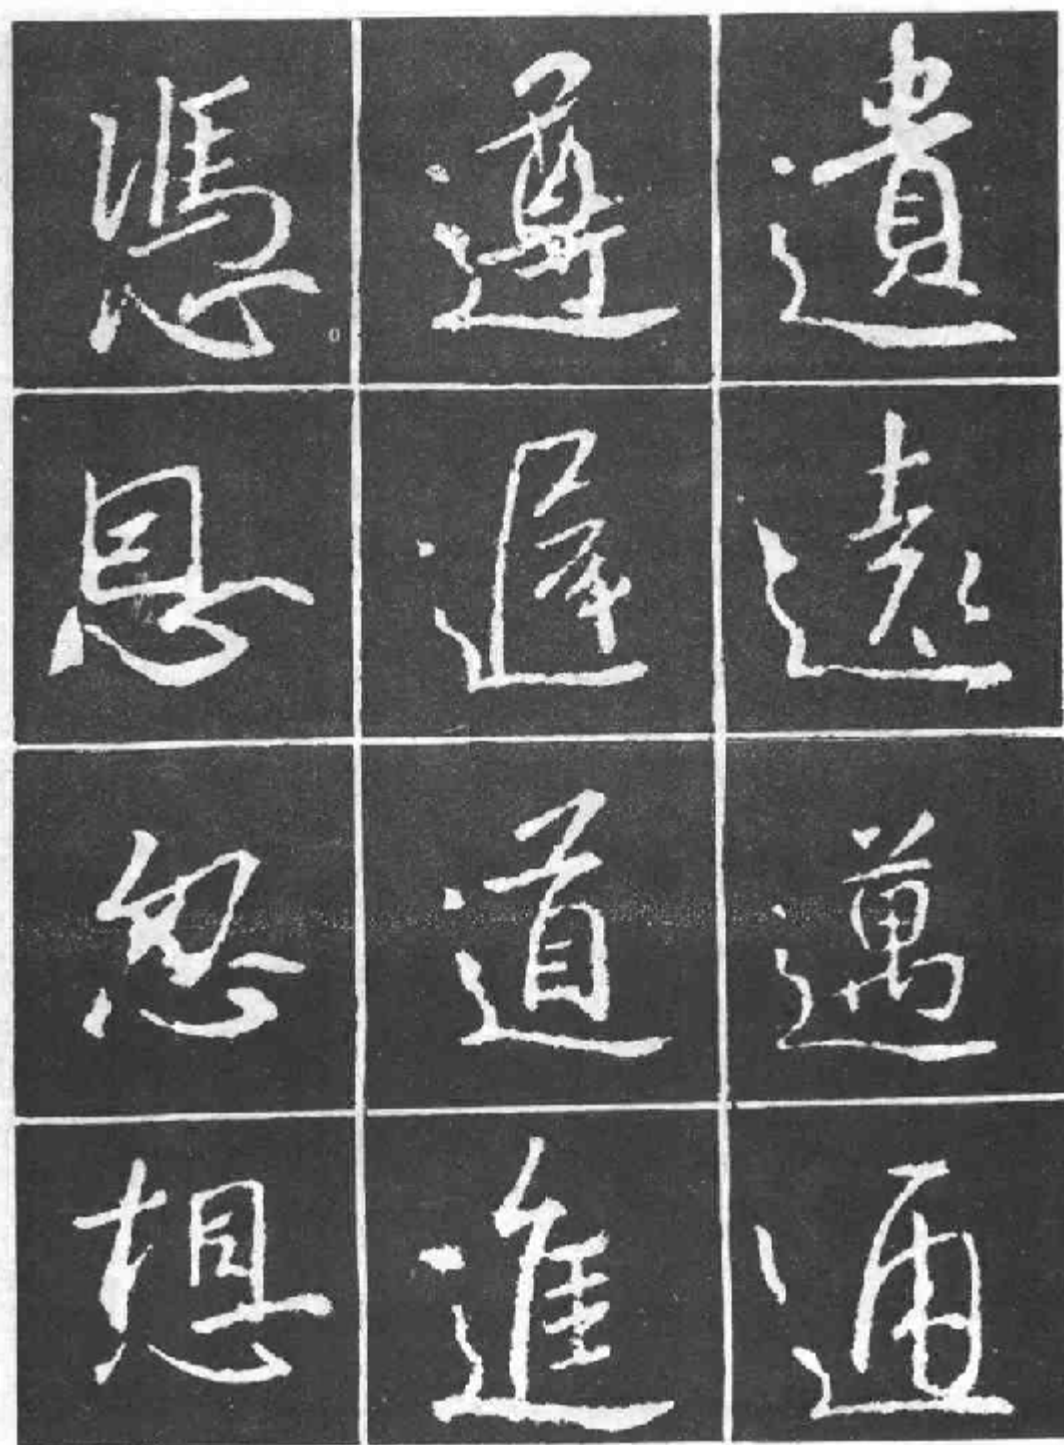 遺遠邁通
遵遲道進
憑恩忽想